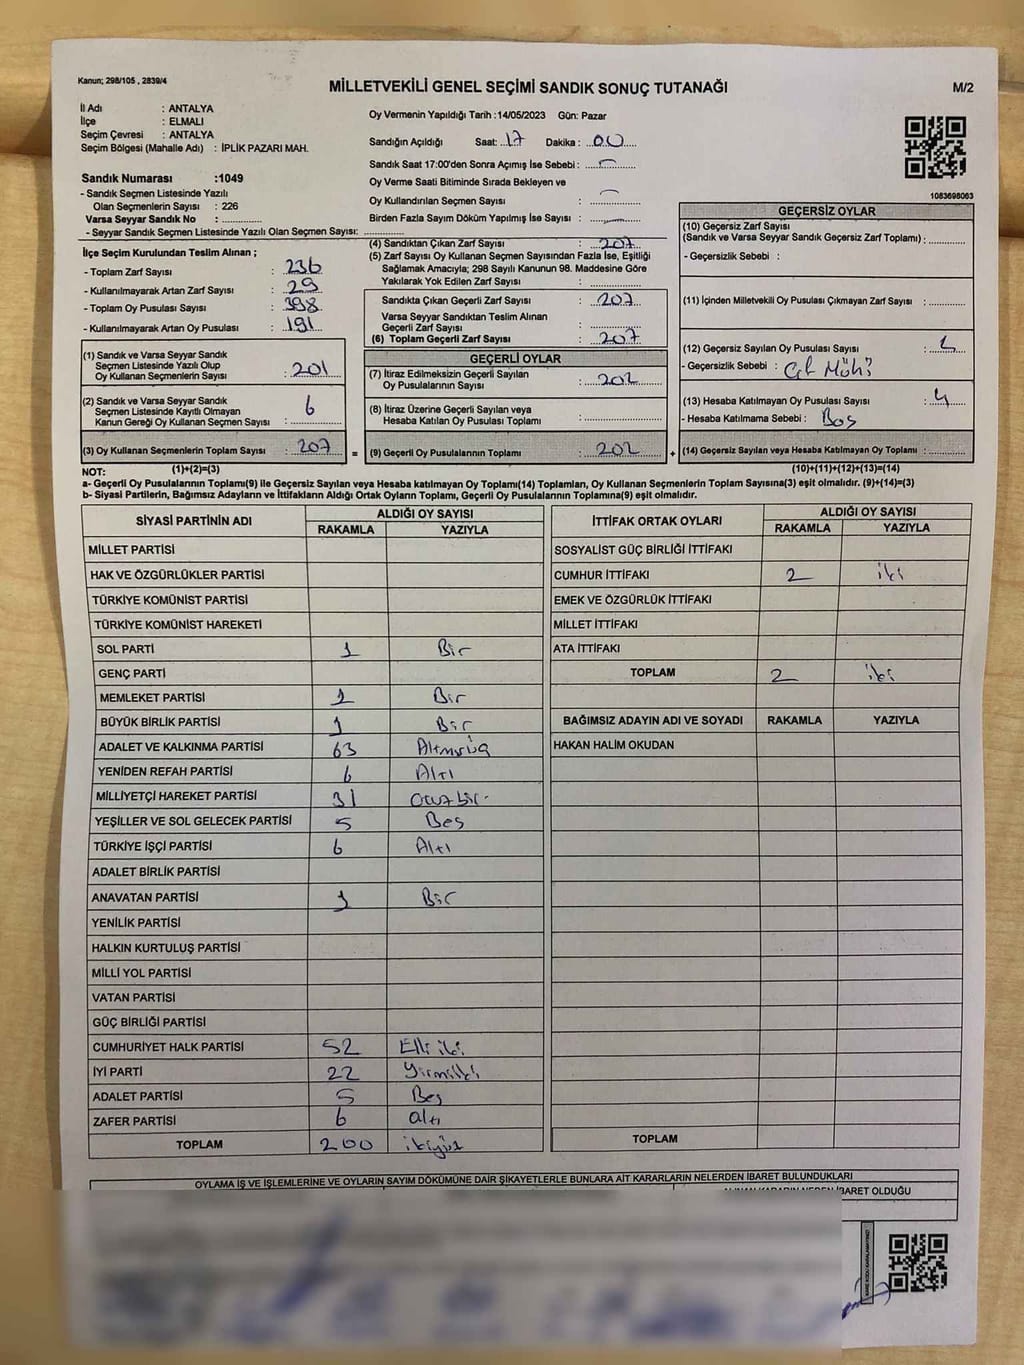 Kanun; 298/105 , 2839/4
MİLLETVEKİLİ GENEL SEÇİMİ SANDIK SONUÇ TUTANAĞI
M/2
İl Adı : ANTALYA
İlçe : ELMALI
Seçim Çevresi : ANTALYA
Seçim Bölgesi (Mahalle Adı) : İPLİK PAZARI MAH.
Sandık Numarası :1049
- Sandık Seçmen Listesinde Yazılı
Olan Seçmenlerin Sayısı : 226
Varsa Seyyar Sandık No : ..............
- Seyyar Sandık Seçmen Listesinde Yazılı Olan Seçmen Sayısı: ..............
Oy Vermenin Yapıldığı Tarih :14/05/2023 Gün: Pazar
Sandığın Açıldığı Saat: 17 Dakika : 00
Sandık Saat 17:00'den Sonra Açımış İse Sebebi :
Oy Verme Saati Bitiminde Sırada Bekleyen ve
Oy Kullandırılan Seçmen Sayısı :
Birden Fazla Sayım Döküm Yapılmış İse Sayısı :
1083698063
İlçe Seçim Kurulundan Teslim Alınan ;
- Toplam Zarf Sayısı : 236
- Kullanılmayarak Artan Zarf Sayısı : 29
- Toplam Oy Pusulası Sayısı : 398
- Kullanılmayarak Artan Oy Pusulası : 191
(1) Sandık ve Varsa Seyyar Sandık
Seçmen Listesinde Yazılı Olup
Oy Kullanan Seçmenlerin Sayısı : 201
(2) Sandık ve Varsa Seyyar Sandık
Seçmen Listesinde Kayıtlı Olmayan
Kanun Gereği Oy Kullanan Seçmen Sayısı : 6
(3) Oy Kullanan Seçmenlerin Toplam Sayısı : 207
(4) Sandıktan Çıkan Zarf Sayısı : 207
(5) Zarf Sayısı Oy Kullanan Seçmen Sayısından Fazla İse, Eşitliği
Sağlamak Amacıyla; 298 Sayılı Kanunun 98. Maddesine Göre
Yakılarak Yok Edilen Zarf Sayısı :
Sandıkta Çıkan Geçerli Zarf Sayısı : 207
Varsa Seyyar Sandıktan Teslim Alınan
Geçerli Zarf Sayısı :
(6) Toplam Geçerli Zarf Sayısı : 207
GEÇERLİ OYLAR
(7) İtiraz Edilmeksizin Geçerli Sayılan
Oy Pusulalarının Sayısı : 202
(8) İtiraz Üzerine Geçerli Sayılan veya
Hesaba Katılan Oy Pusulası Toplamı :
= (9) Geçerli Oy Pusulalarının Toplamı : 202 +
GEÇERSİZ OYLAR
(10) Geçersiz Zarf Sayısı
(Sandık ve Varsa Seyyar Sandık Geçersiz Zarf Toplamı) :
- Geçersizlik Sebebi :
(11) İçinden Milletvekili Oy Pusulası Çıkmayan Zarf Sayısı :
(12) Geçersiz Sayılan Oy Pusulası Sayısı : 1
- Geçersizlik Sebebi :
(13) Hesaba Katılmayan Oy Pusulası Sayısı : 4
- Hesaba Katılmama Sebebi : Boş
(14) Geçersiz Sayılan veya Hesaba Katılmayan Oy Toplamı :
NOT: (1)+(2)=(3) (10)+(11)+(12)+(13)=(14)
a- Geçerli Oy Pusulalarının Toplamı(9) ile Geçersiz Sayılan veya Hesaba katılmayan Oy Toplamı(14) Toplamları, Oy Kullanan Seçmenlerin Toplam Sayısına(3) eşit olmalıdır. (9)+(14)=(3)
b- Siyasi Partilerin, Bağımsız Adayların ve İttifakların Aldığı Ortak Oyların Toplamı, Geçerli Oy Pusulalarının Toplamına(9) eşit olmalıdır.
SİYASİ PARTİNİN ADI ALDIĞI OY SAYISI
RAKAMLA YAZIYLA
MİLLET PARTİSİ
HAK VE ÖZGÜRLÜKLER PARTİSİ
TÜRKİYE KOMÜNİST PARTİSİ
TÜRKİYE KOMÜNİST HAREKETİ
SOL PARTİ 1 Bir
GENÇ PARTİ
MEMLEKET PARTİSİ 1 Bir
BÜYÜK BİRLİK PARTİSİ 1 Bir
ADALET VE KALKINMA PARTİSİ 63 Altmışüç
YENİDEN REFAH PARTİSİ 6 Altı
MİLLİYETÇİ HAREKET PARTİSİ 31 Otuz bir
YEŞİLLER VE SOL GELECEK PARTİSİ 5 Beş
TÜRKİYE İŞÇİ PARTİSİ 6 Altı
ADALET BİRLİK PARTİSİ
ANAVATAN PARTİSİ 1 Bir
YENİLİK PARTİSİ
HALKIN KURTULUŞ PARTİSİ
MİLLİ YOL PARTİSİ
VATAN PARTİSİ
GÜÇ BİRLİĞİ PARTİSİ
CUMHURİYET HALK PARTİSİ 52 Elli iki
İYİ PARTİ 22 Yirmiiki
ADALET PARTİSİ 5 Beş
ZAFER PARTİSİ 6 altı
TOPLAM 200 ikiyüz
İTTİFAK ORTAK OYLARI ALDIĞI OY SAYISI
RAKAMLA YAZIYLA
SOSYALİST GÜÇ BİRLİĞİ İTTİFAKI
CUMHUR İTTİFAKI 2 iki
EMEK VE ÖZGÜRLÜK İTTİFAKI
MİLLET İTTİFAKI
ATA İTTİFAKI
TOPLAM 2 iki
BAĞIMSIZ ADAYIN ADI VE SOYADI RAKAMLA YAZIYLA
HAKAN HALİM OKUDAN
TOPLAM
OYLAMA İŞ VE İŞLEMLERİNE VE OYLARIN SAYIM DÖKÜMÜNE DAİR ŞİKAYETLERLE BUNLARA AİT KARARLARIN NELERDEN İBARET BULUNDUKLARI
İBARET OLDUĞU